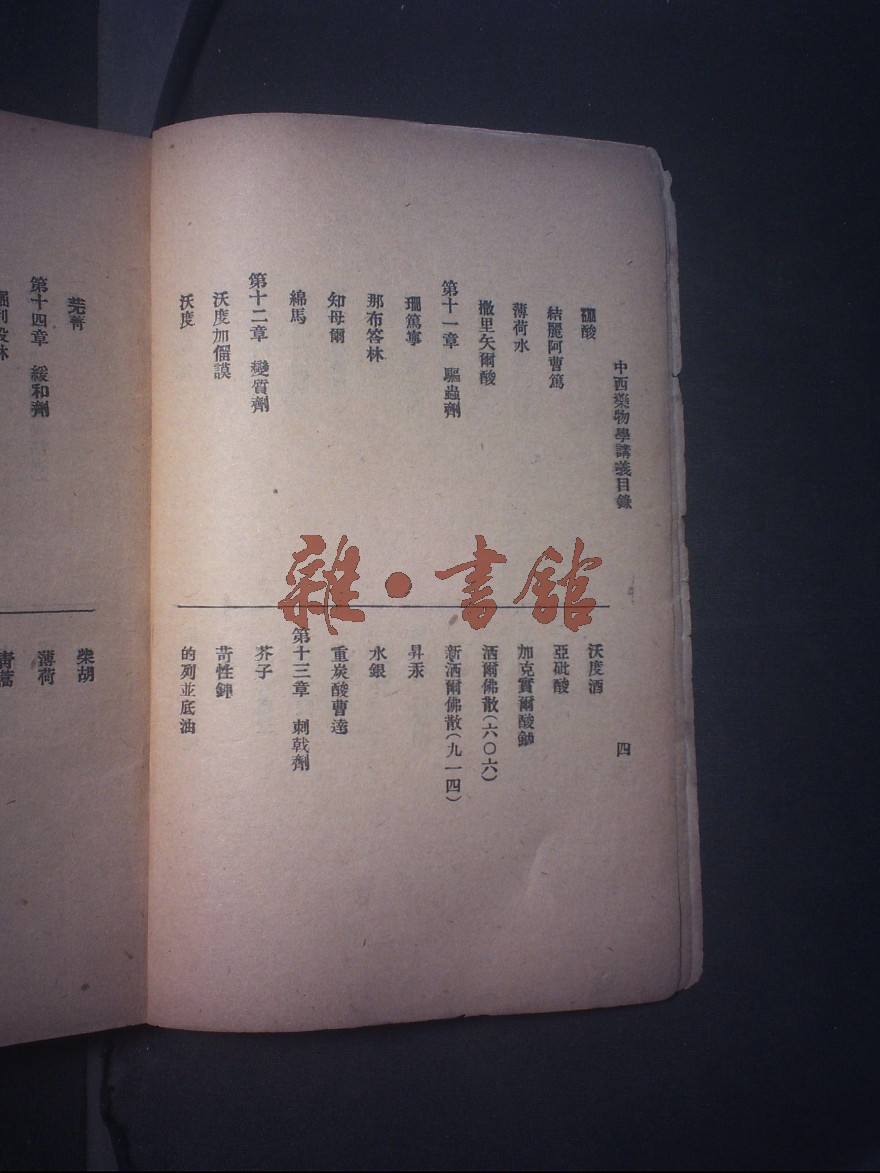 中西藥物學講義目錄
四
硼酸
結麗阿曹篤
薄荷水
撒里矢爾酸
第十一章　驅蟲劑
珊篤寧
那布答林
知母爾
綿馬
第十二章　變質劑
沃度加僧謨
沃度
沃度酒
亞砒酸
加克賓爾酸鈉
洒爾佛散(六〇六)
新洒爾佛散(九一四)
昇汞
水銀
重炭酸曹達
第十三章　刺戟劑
芥子
苛性鉀
的列並底油
芫菁
第十四章　緩和劑
柴胡
薄荷
雜·書館